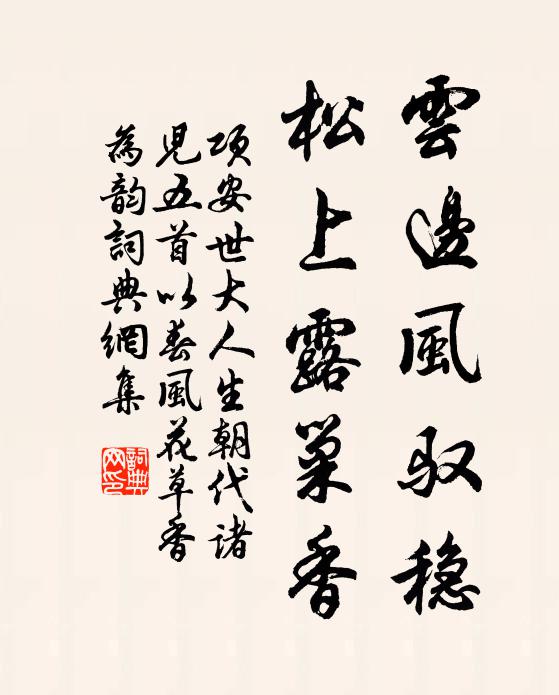 雲邊風馭穩
松上露巢香
項安世大人生朝代諸
兒五首以春風花草香
為韵詞典網集
詞典网印